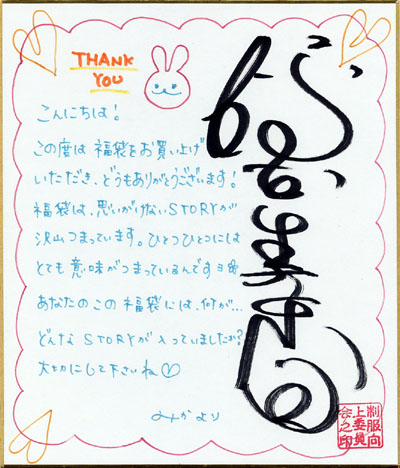 THANK
YOU
こんにちは!
この度は 福袋をお買い上げ
いただき、どうもありがとうございます!
福袋は、思いがけないSTORYが
沢山つまっています。ひとつひとつには
とても意味がつまっているんですヨ
あなたのこの福袋には、何が…
どんなSTORYが入っていましたか?
大切にして下さいね♡
みかより
制服向
上委員
会之印